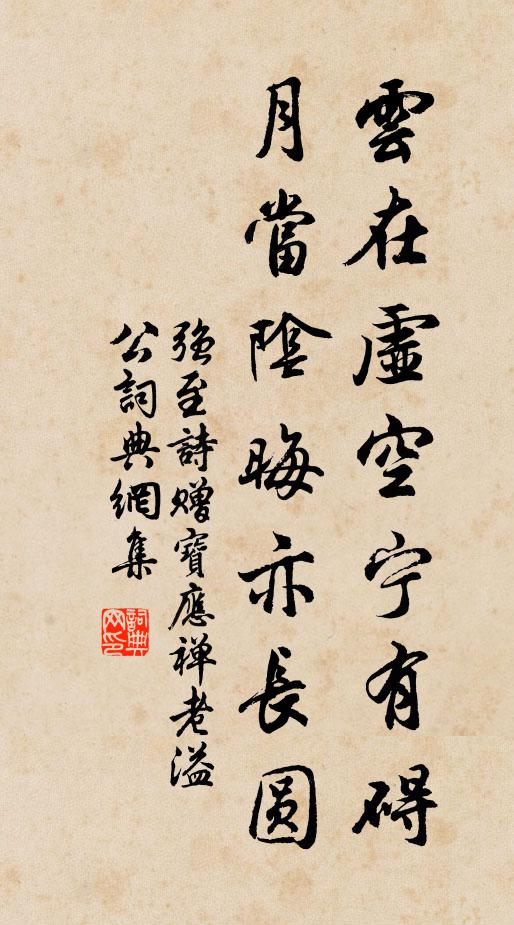 雲在虛空宁有碍
月當陰晦亦長圆
强至詩赠寶應禅老溢
公詞典網集
詞典网印